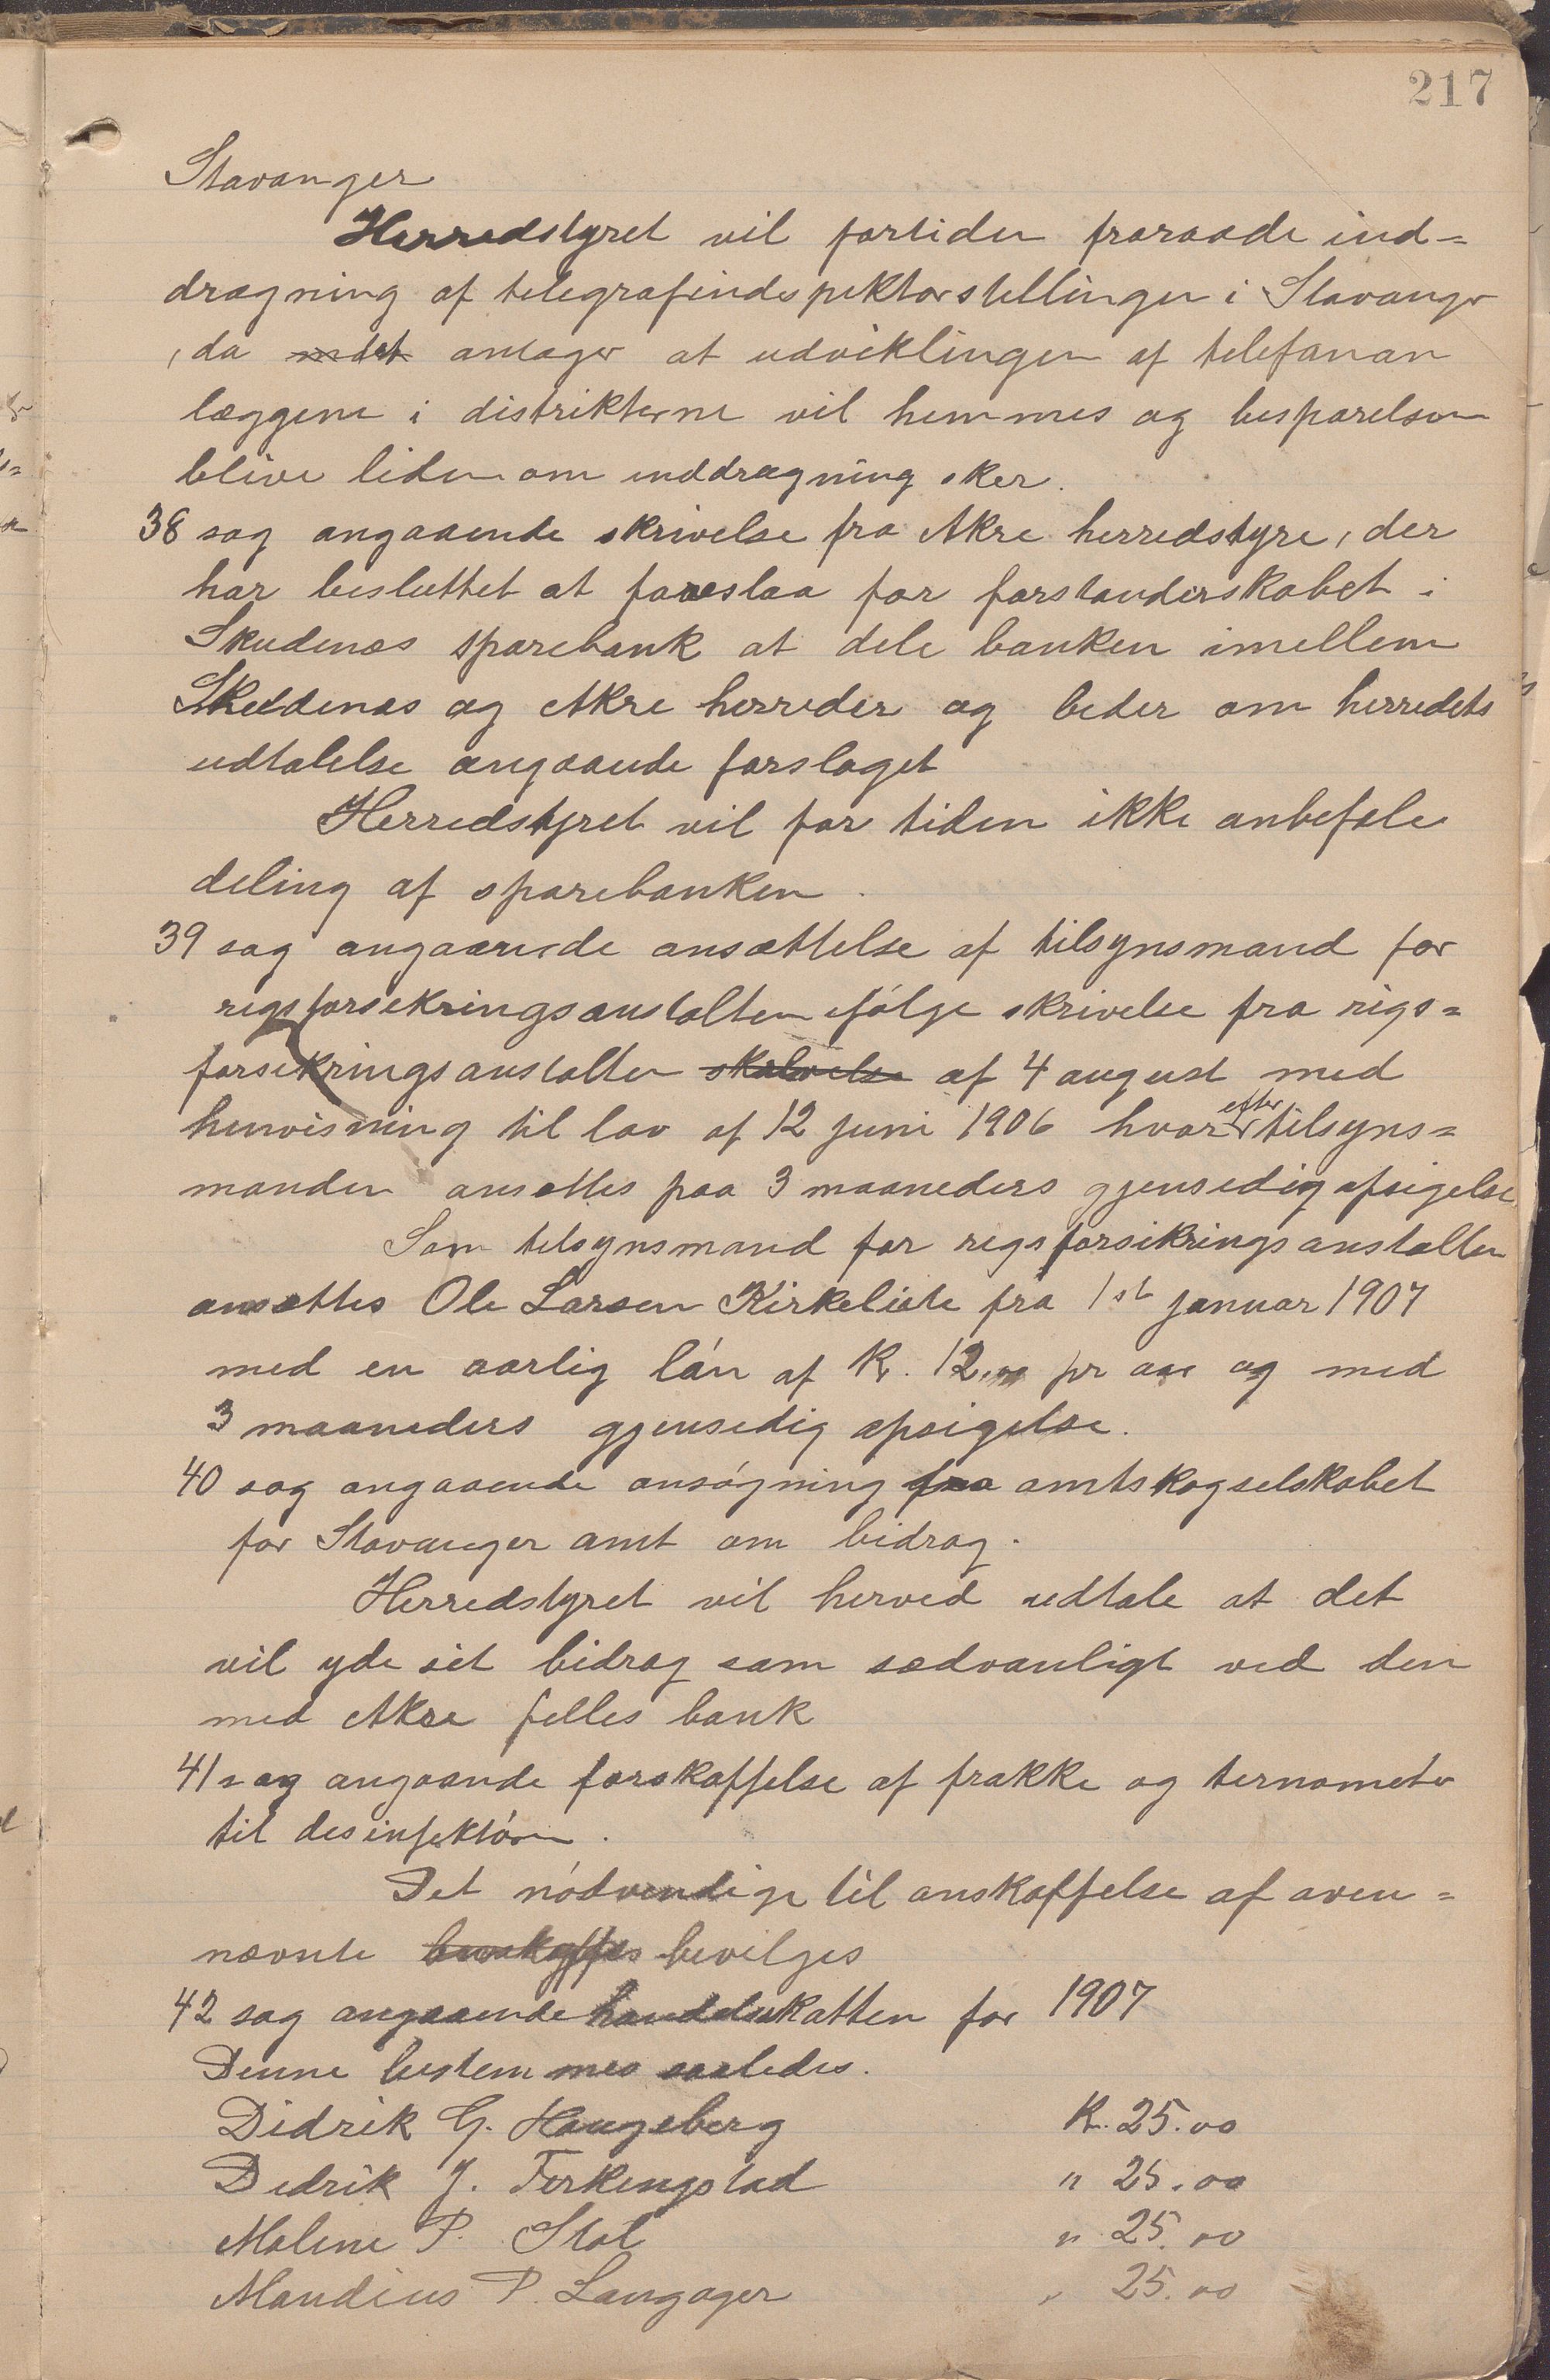 217
Stavanger
Herredstyret vil fortiden fraraade ind=
dragning af telegrafindspektørstillingen i Stavanger
, da antager at udviklingen af telefonan
læggene i distrikterne vil hemmes og besparelsen
blive liden om inddragning sker.
38 sag angaaende skrivelse fra Akre herredstyre, der
har besluttet at foreslaa for forstanderskabet i
Skudenæs sparebank at dele banken imellem
Skudenæs og Akre herreder og beder om herredets
udtalelse angaaende forslaget
Herredstyret vil for tiden ikke anbefale
deling af sparebanken.
39 sag angaaende ansættelse af tilsynsmand for
rigsforsekringsanstalten ifølge skrivelse fra rigs=
forsikringsanstalten af 4 august med
henvisning til lov af 12 juni 1906 hvorefter tilsyns=
manden ansættes paa 3 maaneders gjensedig afsigelse,
Som tilsynsmand for rigsforsikringsanstalten
ansættes Ole Larsen Kirkeliete fra 1st januar 1907
med en aarlig løn af Kr. 12.00 pr aar og med
3 maaneders gjensedig opsigelse.
40 sag angaaende ansøgning fra amtskogselskabet
for Stavanger amt om bidrag.
Herredstyret vil herved udtale at det
vil yde sit bidrag som sædvanligt ved den
med Akre felles bank
41 sag angaaende forskaffelse af frakke og ternometer
til desinfektøren.
Det nødvendige til anskaffelse af oven=
nævnte bevilges
42 sag angaaende handelsskatten for 1907
Denne bestemmes saaledes.
Didrik G. Haugeberg K. 25.00
Didrik J. Ferkingstad " 25.00
Malene P. Stol " 25.00
Mandius P. Langager " 25.00